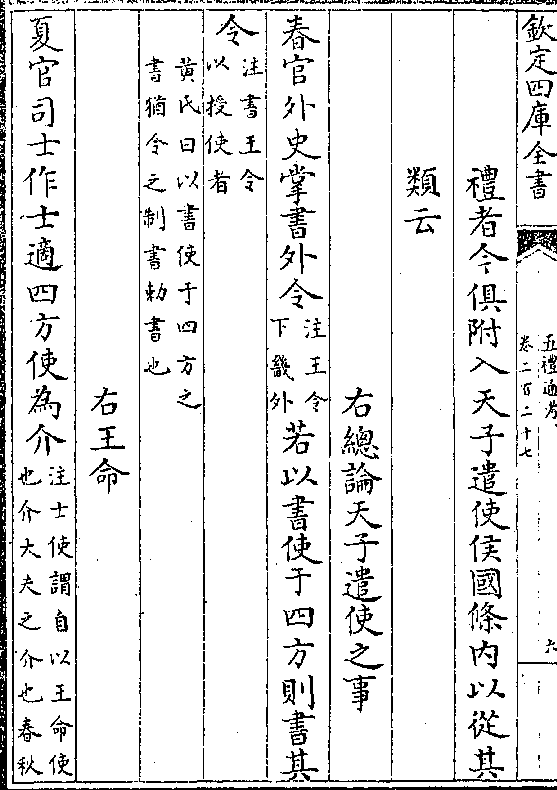 欽定四庫全書
五禮通考
卷二百二十七
六
禮者今俱附入天子遣使侯國條内以從其
類云
右總論天子遣使之事
春官外史掌書外令
注王令
下畿外
若以書使于四方則書其
令
注書王令
以授使者
黄氏曰以書使于四方之
書猶令之制書勅書也
右王命
夏官司士作士適四方使為介
注士使謂自以王命使
也介大夫之介也春秋